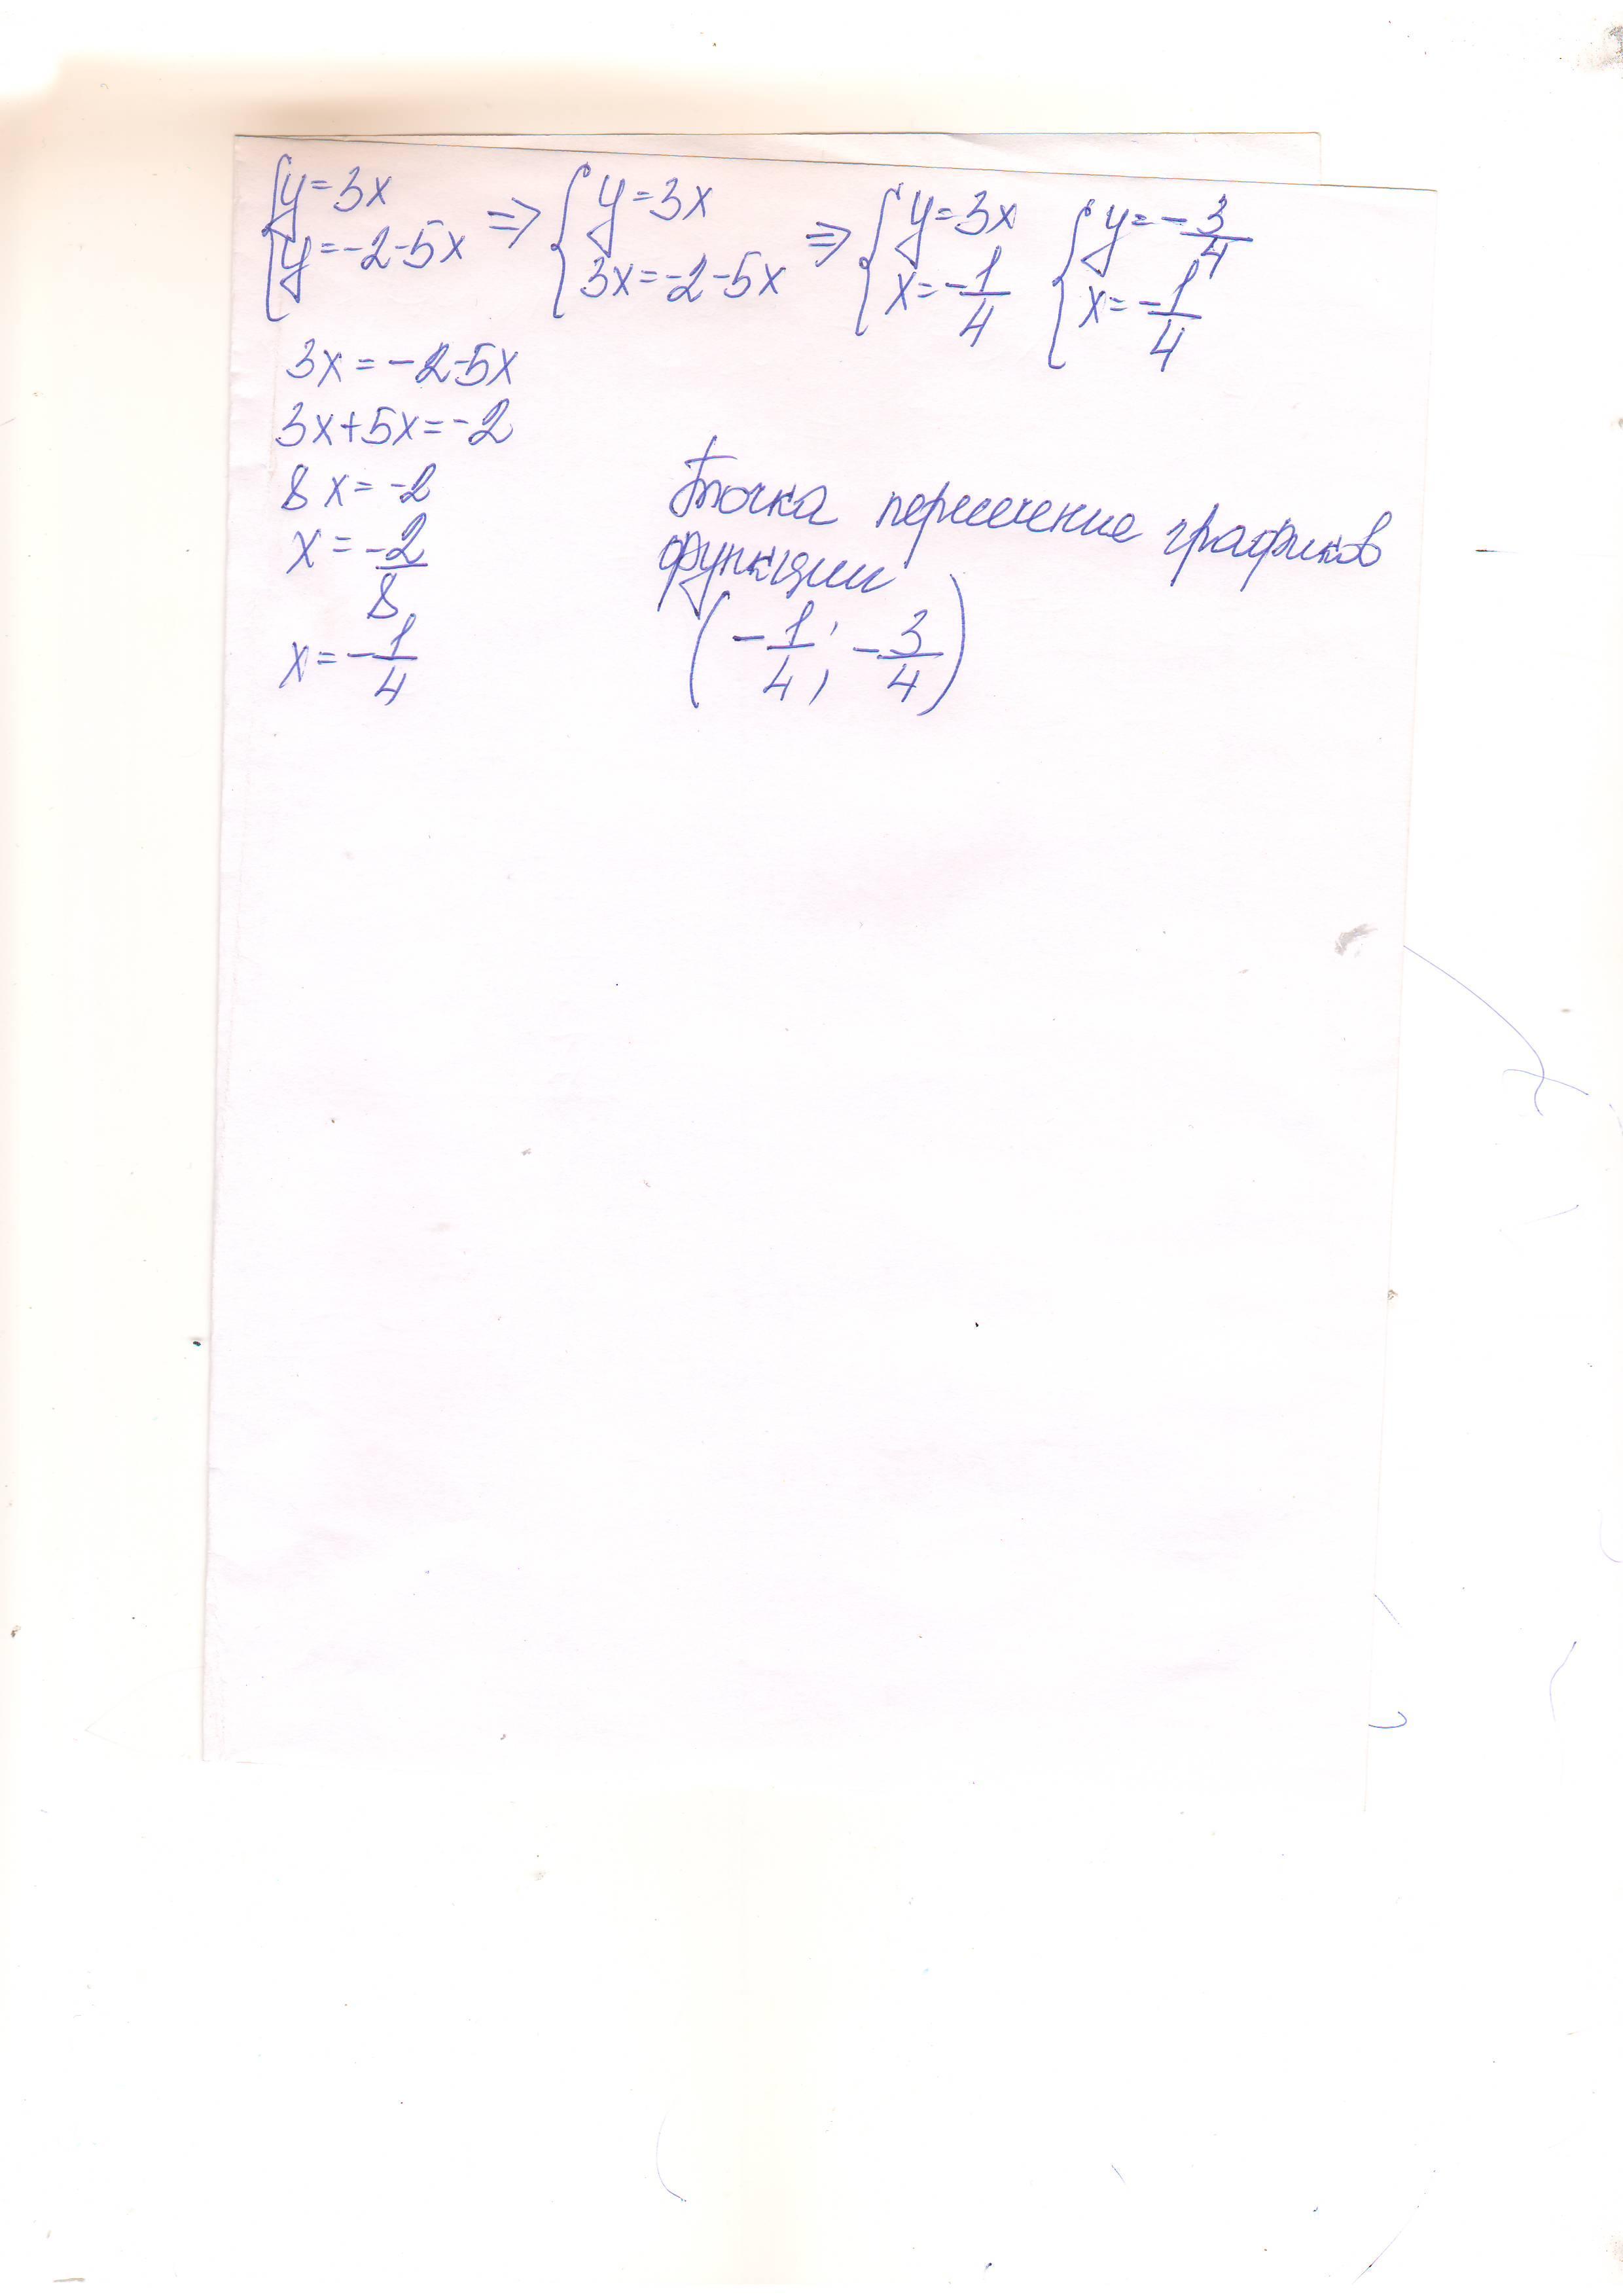 { y = 3x
{ y = -2-5x
⇒ { y = 3x
{ 3x = -2-5x
⇒ { y = 3x
{ x = -1/4
{ y = -3/4
{ x = -1/4
3x = -2-5x
3x+5x = -2
8x = -2
x = -2/8
x = -1/4
Точка пересечение графиков
функции
(-1/4; -3/4)